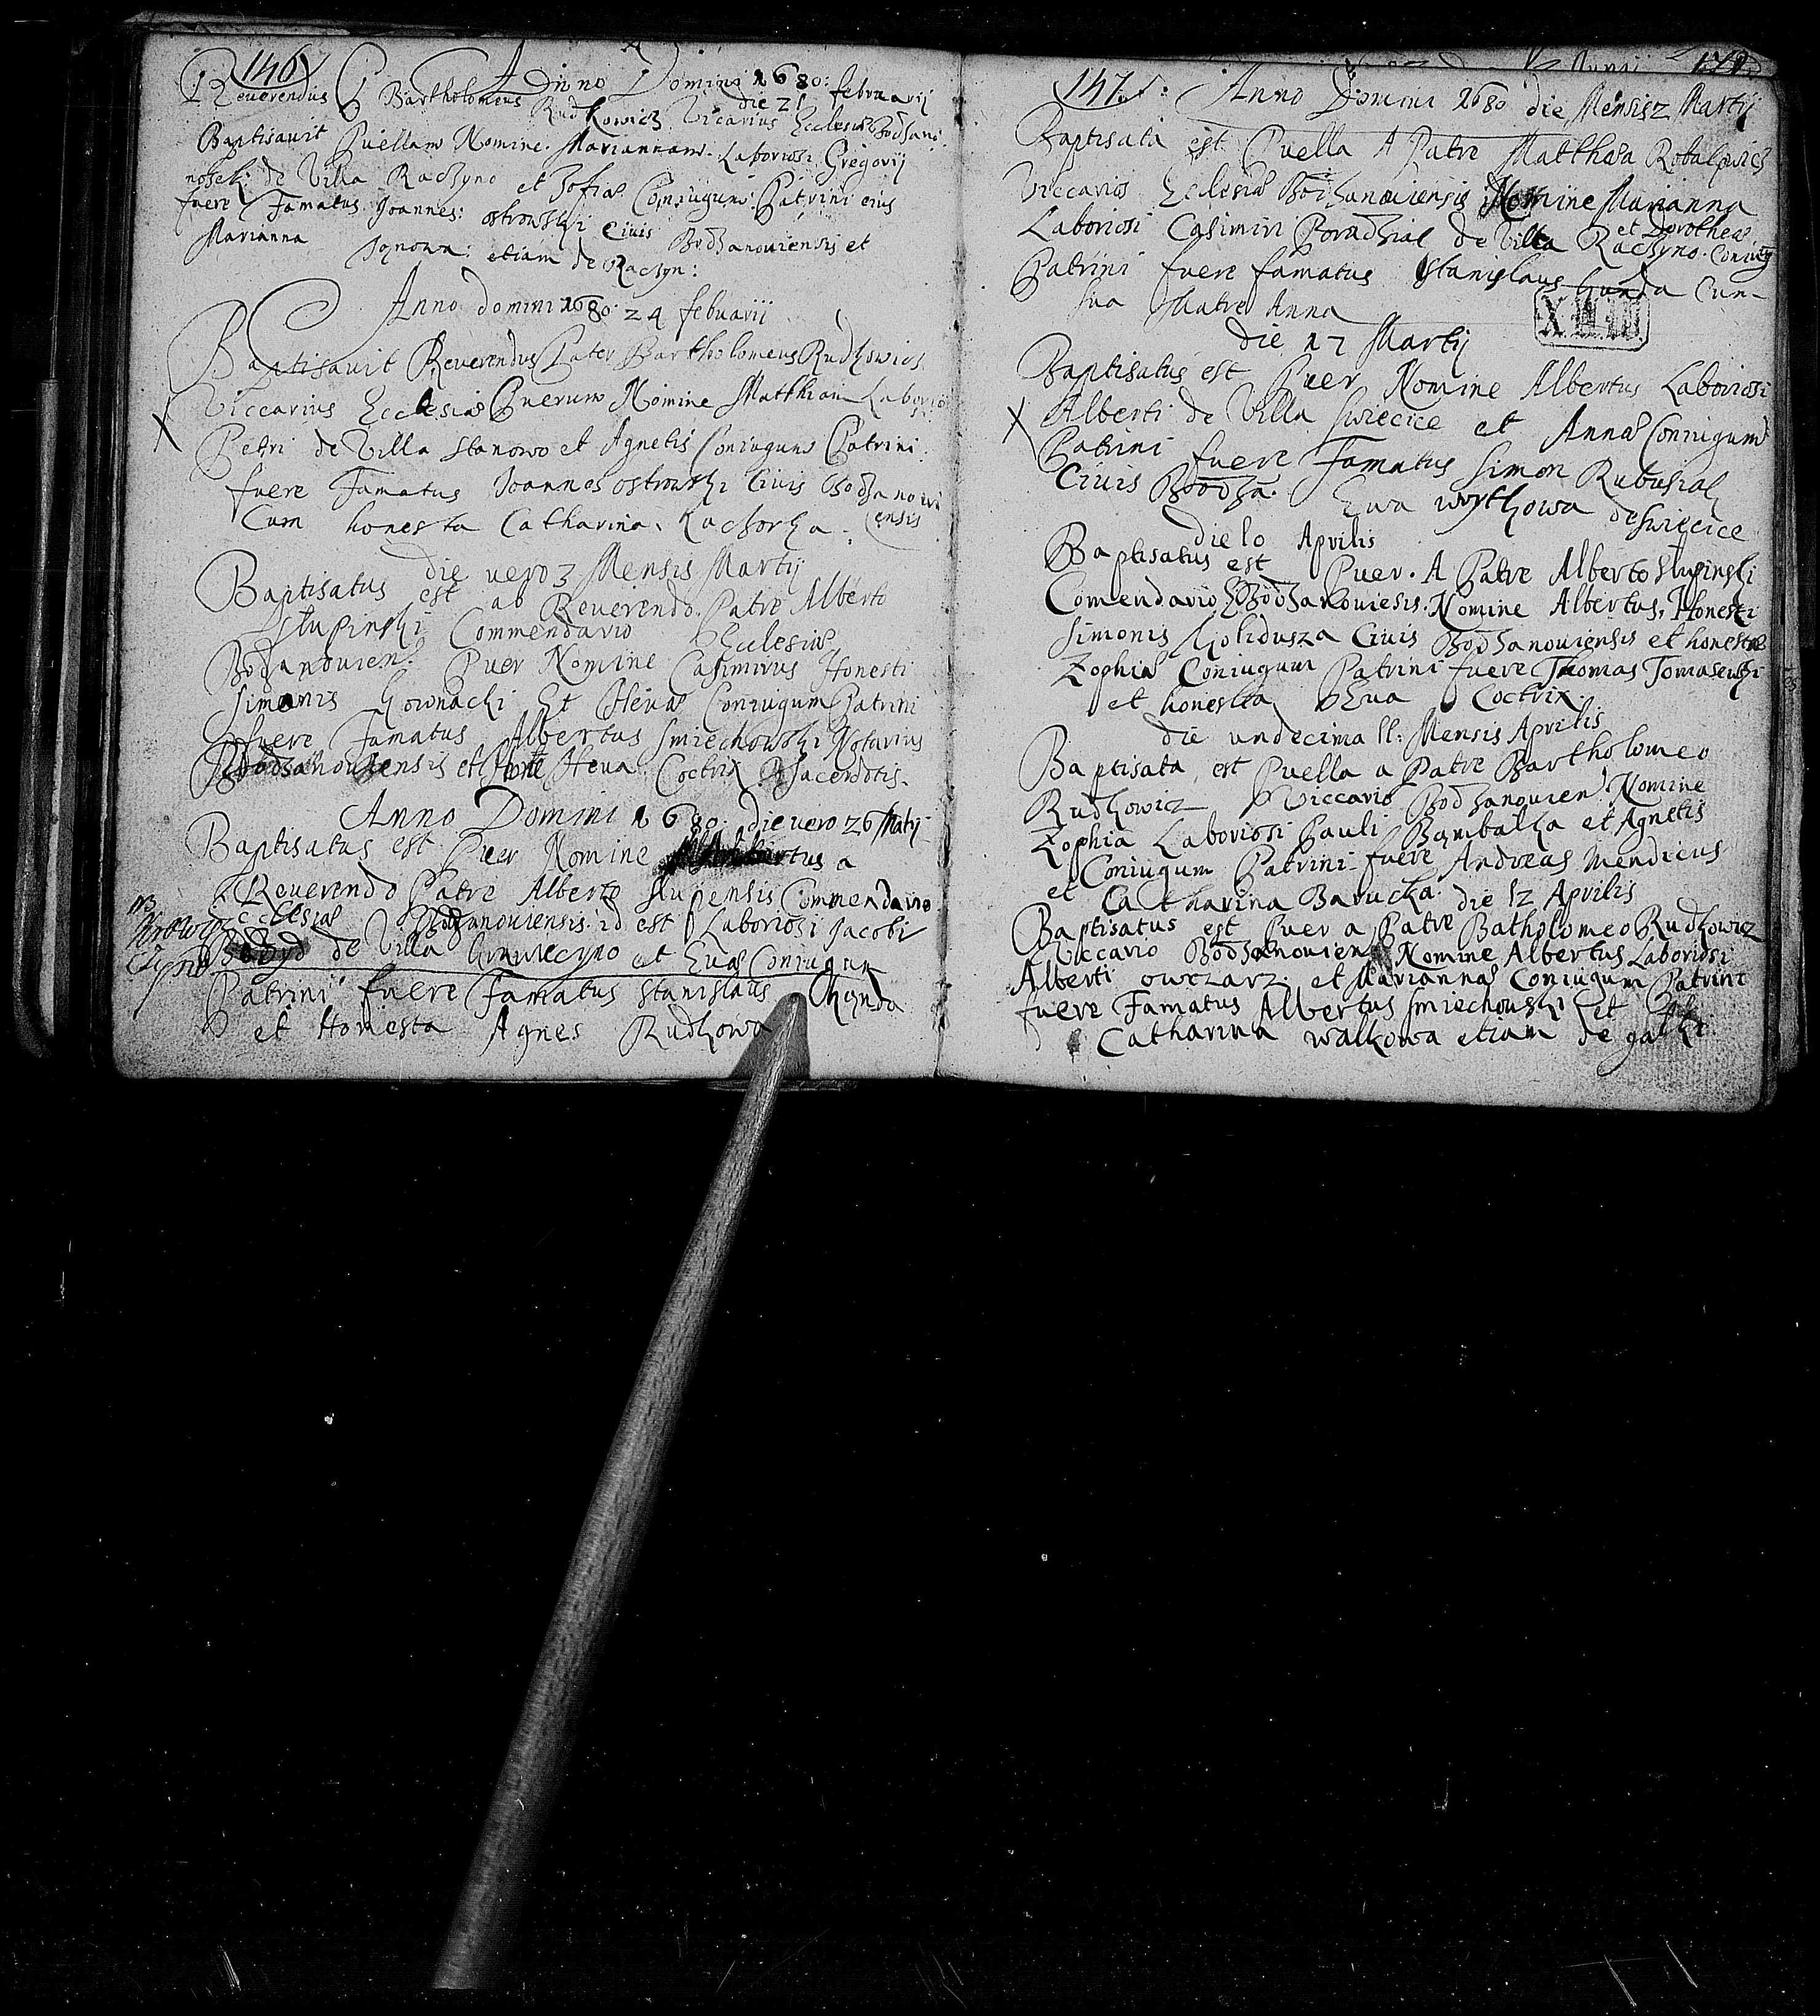 146
Anno Domini 1680: februarij
Reverendus P Bartholomeus Rudkowicz die 21 Vicarius Ecclesiæ Bodzano
Baptisavit Puellam Nomine Mariannam Laboriosi Gregorij
de Villa Raczyno et Zofiæ Coniugum Patrini eius
fuere Famatus Joannes: ostrowski Civis Bodzanoviensis et
Marianna etiam de Raczyn:
Anno domini 1680: 24 febuarii
Baptisavit Reverendus Pater Bartholomeus Rudkowics
Viccarius Ecclesiæ Puerum Nomine Matthiam Laborio
X
Petri de Villa Stanowo et Agnetis Coniugum Patrini
fuere Famatus Joannes ostrowski Civis Bodzanowi
ensis
Cum honesta Catharina Kaczorka
die vero 3 Mensis Martij
Baptisatus est ab Reverendo Patre Alberto
Slupinski Commendario Ecclesiæ
Bodzanovien: Puer Nomine Casimirus Honesti
Simonis Gownacki Et Hevæ Coniugum Patrini
fuere Famatus Albertus Smiechowski Notarius
Bodzanoviensis et Heva Coctrix Sacerdotis
Anno Domini 1680: die vero 26 Matij
Baptisatus est Puer Nomine a
Reverendo Patre Alberto Slupensis Commendario
Ecclesiæ Bodzanoviensis id est Laboriosi Jacobi
de Villa et Evæ Coniugum
Patrini fuere Famatus Stanislaus
et Honesta Agnes Rudkowa
147
Anno Domini 1680 die Mensis 2 Martij
Baptisata est Puella A Patre Matthæa
Viccario Ecclesiæ Bodzanoviensis Nomine Marianna
et Dorotheæ
Laboriosi Casimiri de Villa Raczyno Coniug
Patrini fuere famatus Stanislaus Cun
sua Matre Anna
die 17 Martij
Baptisatus est Puer Nomine Albertus Laboriosi
X
Alberti de Villa Swiecice et Annæ Coniugum
Patrini fuere Famatus Simon Rubusiak
Civis Bodza. Ewa wytkowa de Swiecice
die 10 Aprilis
Baptisatus est Puer A Patre Alberto Slupinski
Comendario Bodzanoviesis Nomine Albertus, Honesti
Simonis Civis Bodzanoviensis et honestæ
Zophiæ Coniugum Patrini fuere Thomas Tomasewski
et honesta Eva Coctrix
die undecima 11: Mensis Aprilis
Baptisata est Puella a Patre Bartholomeo
Rudkowicz Viccario Bodzanovien Nomine
Zophia Laboriosi Pauli Bambalka et Agnetis
Coniugum Patrini fuere Andreas Mendicus
et Catharina Barucka. die 12 Aprilis
Baptisatus est Puer a Patre Batholomeo Rudkowicz
Viccario Bodzanovien Nomine Albertus Laboriosi
Alberti owczarz et Mariannæ Coniugum Patrini
fuere Famatus Albertus Smiechowski Et
Catharina walkowa etiam de galki